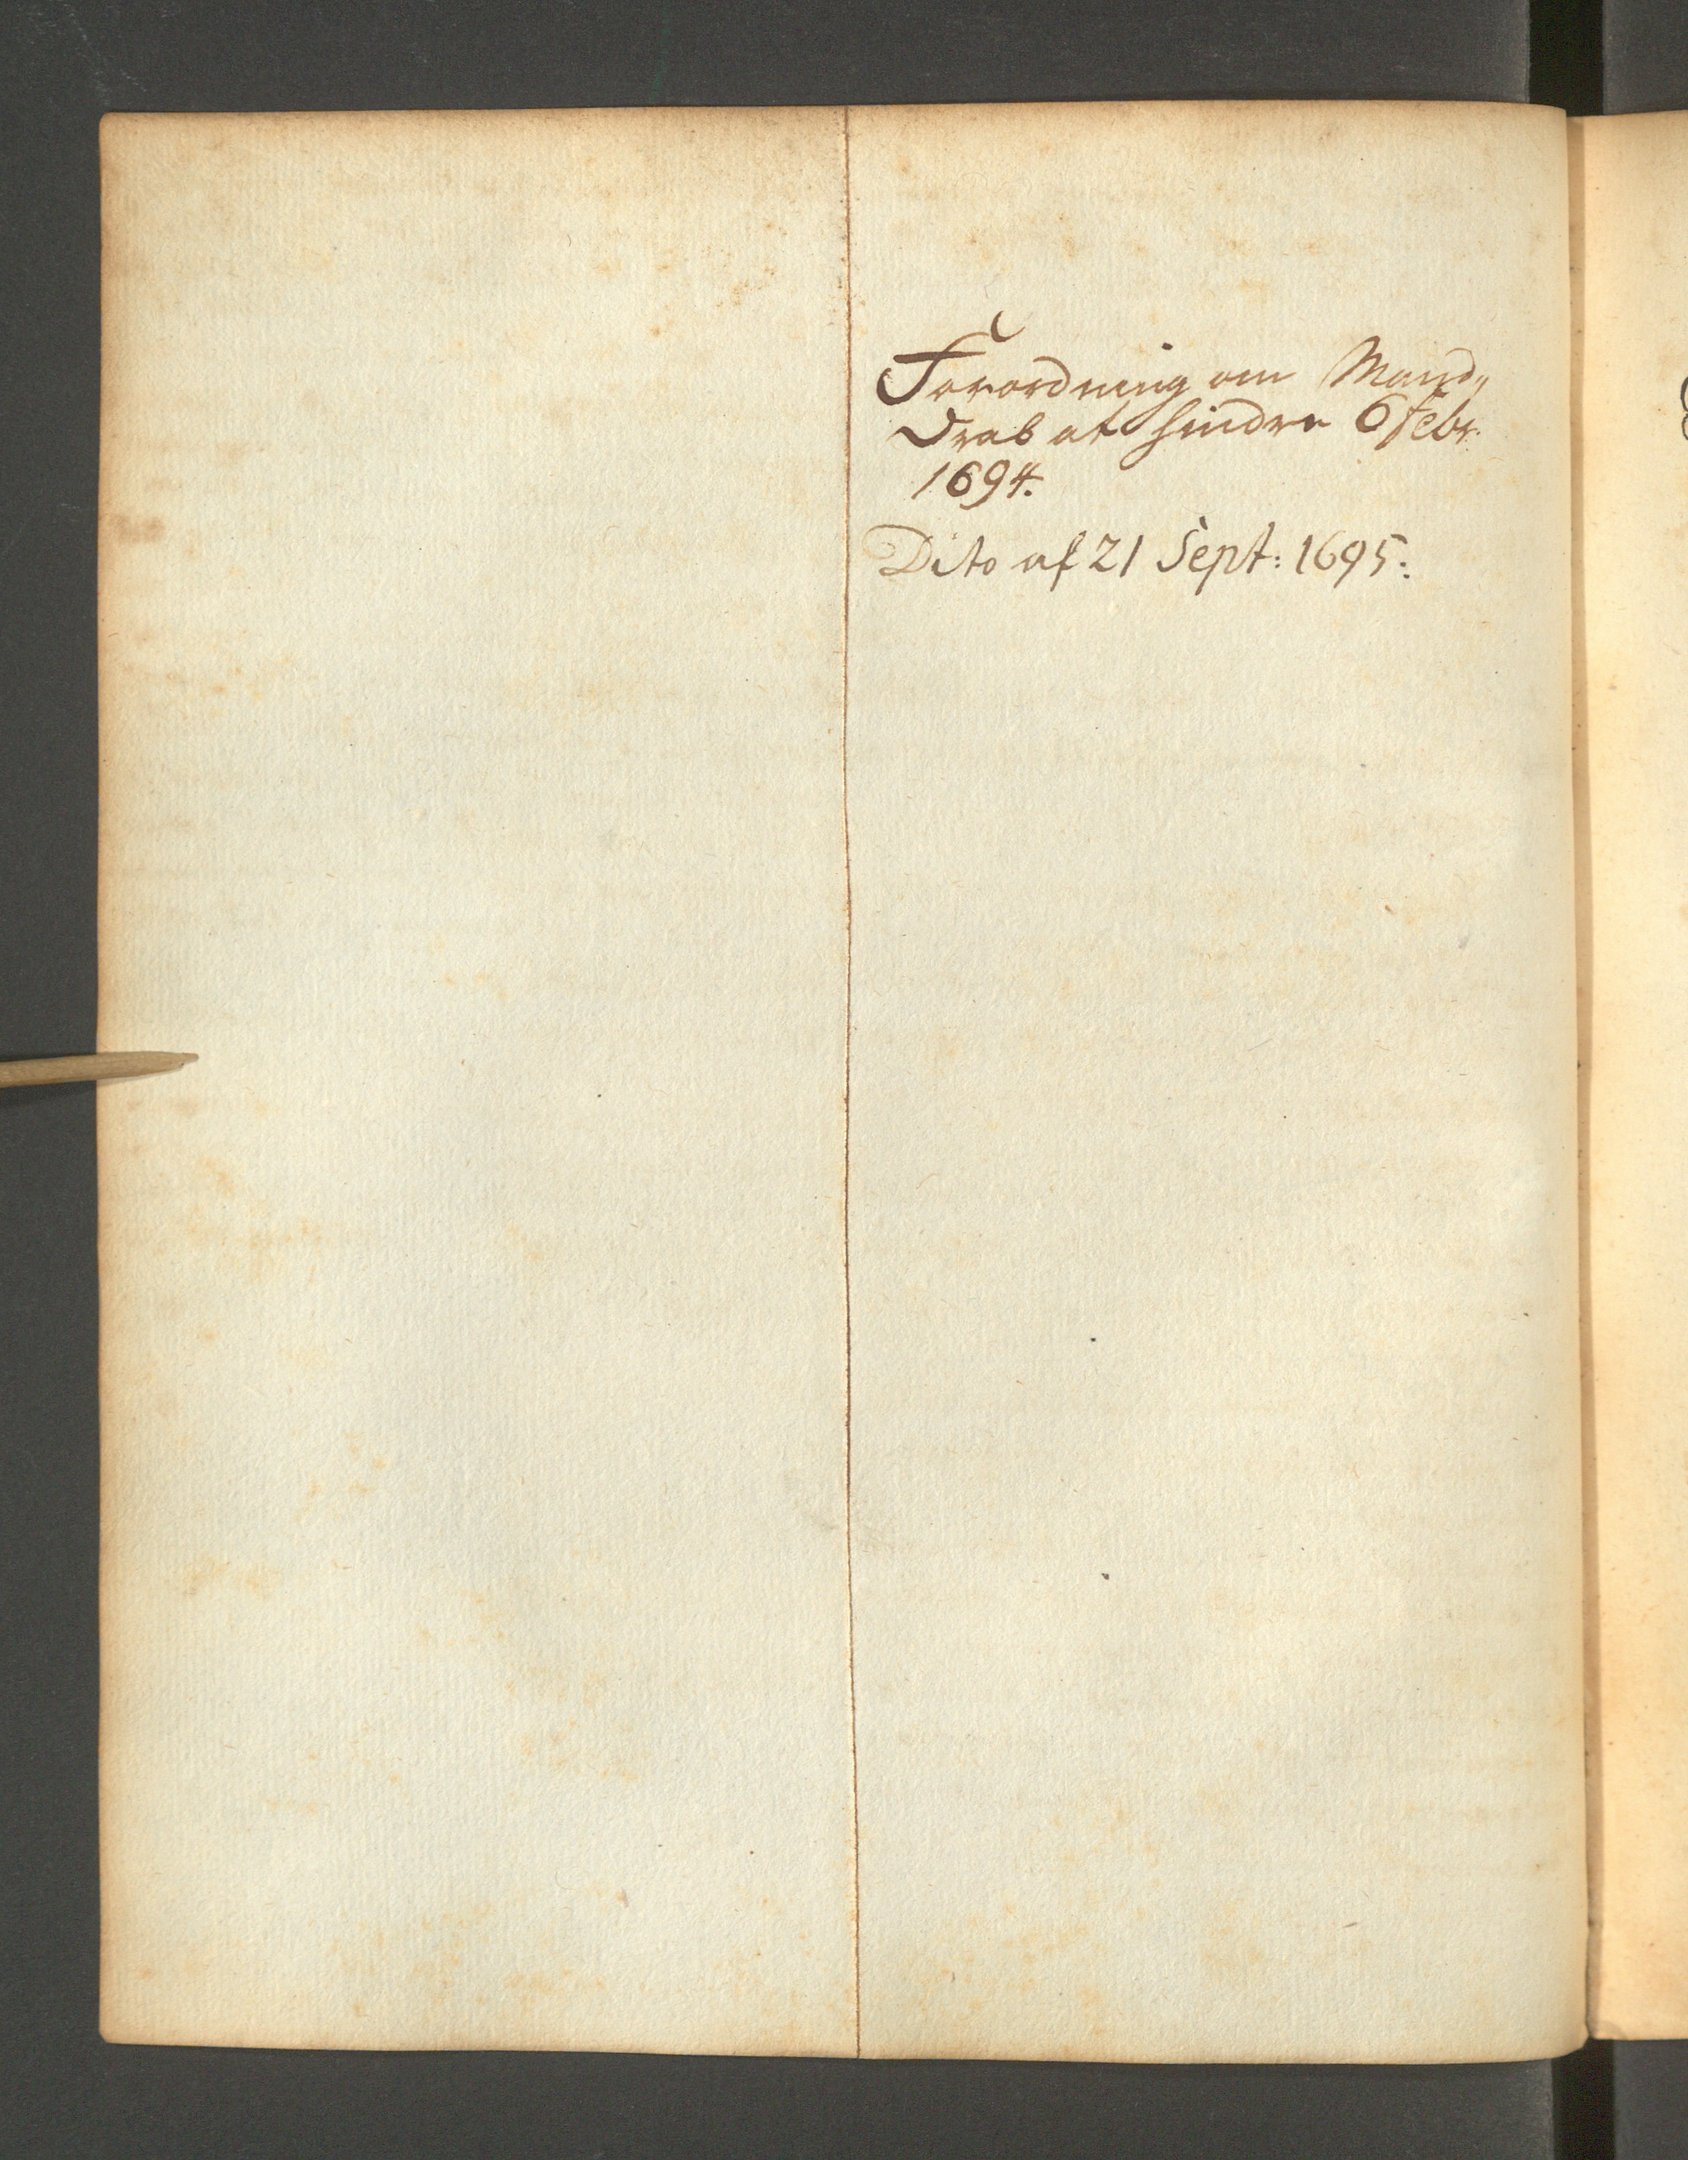 Forordning om Mand„
Drab at hindre 6 Febr.
1694.
Dito af 21 Sept: 1695: